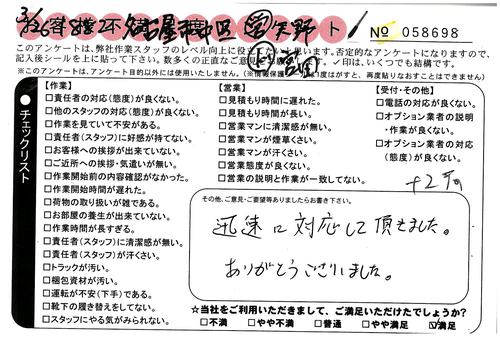 No 058698
このアンケートは、弊社作業スタッフのレベル向上に役立たせていただきます。否定的なアンケートになりますので、
記入後シールを上に貼って下さい。数多くの正直なご意見
✓印は、いくつでも結構です。
※このアンケートは、アンケート目的以外には使用いたしません。
度はがすと、再度貼りなおすことはできません)
チェックリスト
【作業】
□責任者の対応(態度)が良くない。
□他のスタッフの対応(態度)が良くない。
□作業を見ていて不安がある。
□責任者(スタッフ)に好感が持てない。
□お客様への挨拶が出来ていない。
□ご近所への挨拶・気遣いが無い。
□作業開始前の内容確認がなかった。
□作業開始時間が遅れた。
□荷物の取り扱いが雑である。
□お部屋の養生が出来ていない。
□作業時間が長すぎる。
□責任者(スタッフ)に清潔感が無い。
□責任者(スタッフ)が汗くさい。
□トラックが汚い。
□梱包資材が汚い。
□運転が不安(下手)である。
□靴下の履き替えをしてない。
□スタッフにやる気がみられない。
【営業】
□見積もり時間に遅れた。
□見積もり時間が長い。
□営業マンに清潔感が無い。
□営業マンが煙草くさい。
□営業マンが汗くさい。
□営業態度が良くない。
□営業の説明と作業が一致してない。
【受付・その他】
□電話の対応が良くない。
□オプション業者の説明
・作業が良くない。
□オプション業者の対応
(態度)が良くない。
その他、ご意見・ご要望等ありましたらお書き下さい。
迅速に対応して頂きました。
ありがとうございました。
☆当社をご利用いただきまして、ご満足いただけたでしょうか?
□不満 □やや不満 □普通 □やや満足 ☑満足